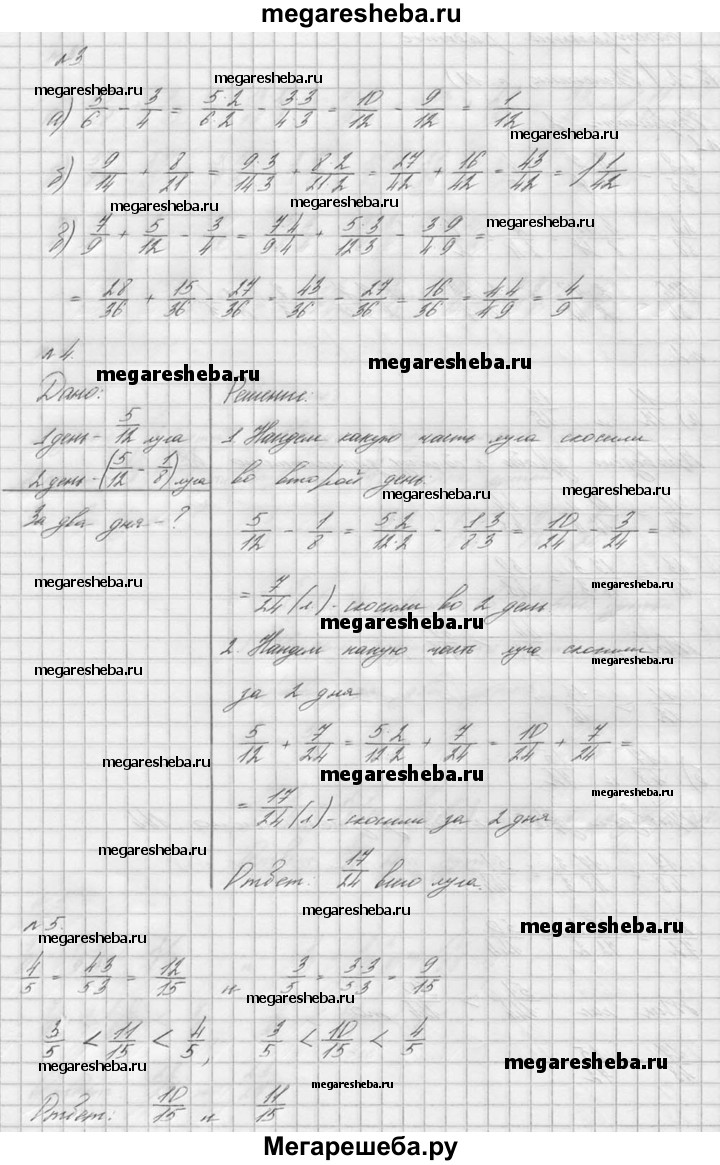 megaresheba.ru
№3
megaresheba.ru
megaresheba.ru
а) 5/6 - 3/4 = 5·2/6·2 - 3·3/4·3 = 10/12 - 9/12 = 1/12
megaresheba.ru
б) 9/14 + 8/21 = 9·3/14·3 + 8·2/21·2 = 27/42 + 16/42 = 43/42 = 1 1/42
megaresheba.ru
megaresheba.ru
в) 7/9 + 5/12 - 3/4 = 7·4/9·4 + 5·3/12·3 - 3·9/4·9 =
= 28/36 + 15/36 - 27/36 = 43/36 - 27/36 = 16/36 = 4·4/4·9 = 4/9
№4.
megaresheba.ru
megaresheba.ru
Дано:
1 день - 5/12 луга
2 день - (5/12 - 1/8) луга
За два дня - ?
Решение:
1. Найдем какую часть луга скосили
во второй день.
megaresheba.ru
megaresheba.ru
5/12 - 1/8 = 5·2/12·2 - 1·3/8·3 = 10/24 - 3/24 =
megaresheba.ru
megaresheba.ru
= 7/24 (л) - скосили во 2 день.
megaresheba.ru
2. Найдем какую часть луга скосили
megaresheba.ru
megaresheba.ru
за 2 дня
5/12 + 7/24 = 5·2/12·2 + 7/24 = 10/24 + 7/24 =
megaresheba.ru
megaresheba.ru
megaresheba.ru
= 17/24 (л) - скосили за 2 дня
megaresheba.ru
Ответ: 17/24 всего луга.
megaresheba.ru
№5.
megaresheba.ru
megaresheba.ru
4/5 = 4·3/5·3 = 12/15 и 3/5 = 3·3/5·3 = 9/15
megaresheba.ru
3/5 < 11/15 < 4/5, 3/5 < 10/15 < 4/5
megaresheba.ru
megaresheba.ru
megaresheba.ru
Ответ: 10/15 и 11/15
Мегарешеба.ру